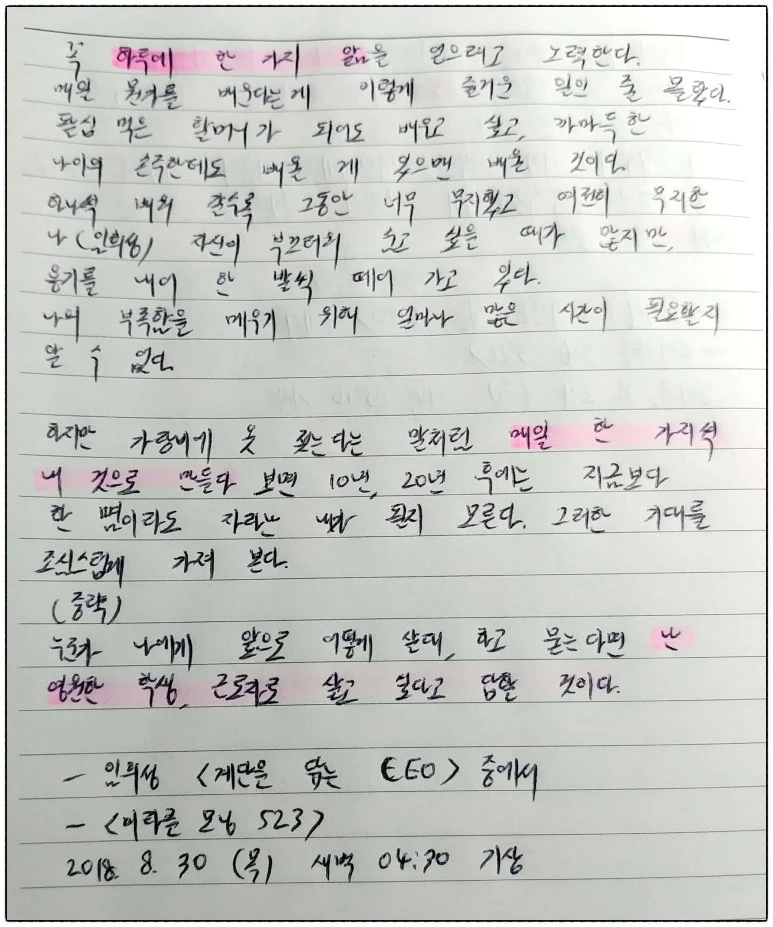 꼭 하루에 한 가지 앎을 얻으려고 노력한다.
매일 뭔가를 배운다는게 이렇게 즐거운 일인 줄 몰랐다.
뒷심 먹은 할머니가 되어도 배우고 싶고, 까마득한
나이의 손주한테도 배울 게 있으면 배울 것이다.
하나씩 배워 갈수록 그동안 너무 무지했고 여전히 무지한
나(임희성) 자신이 부끄러워 숨고 싶은 때가 많지만,
용기를 내어 한 발씩 떼어 가고 있다.
나의 부족함을 메우기 위해 얼마나 많은 시간이 필요할지
알 수 없다.
하지만 가랑비에 옷 젖는다는 말처럼 매일 한 가지씩
내 것으로 만들다 보면 10년, 20년 후에는 지금보다
한 뼘이라도 자라는 내가 될지 모른다. 그러한 기대를
조심스럽게 가져 본다.
(중략)
누군가 나에게 앞으로 어떻게 살래, 하고 묻는다면 난
영원한 학생, 근로자로 살고 싶다고 답할 것이다.
- 임희성 <계단을 닦는 CEO> 중에서
- <미라클 모닝 523>
2018. 8. 30 (목) 새벽 04:30 기상